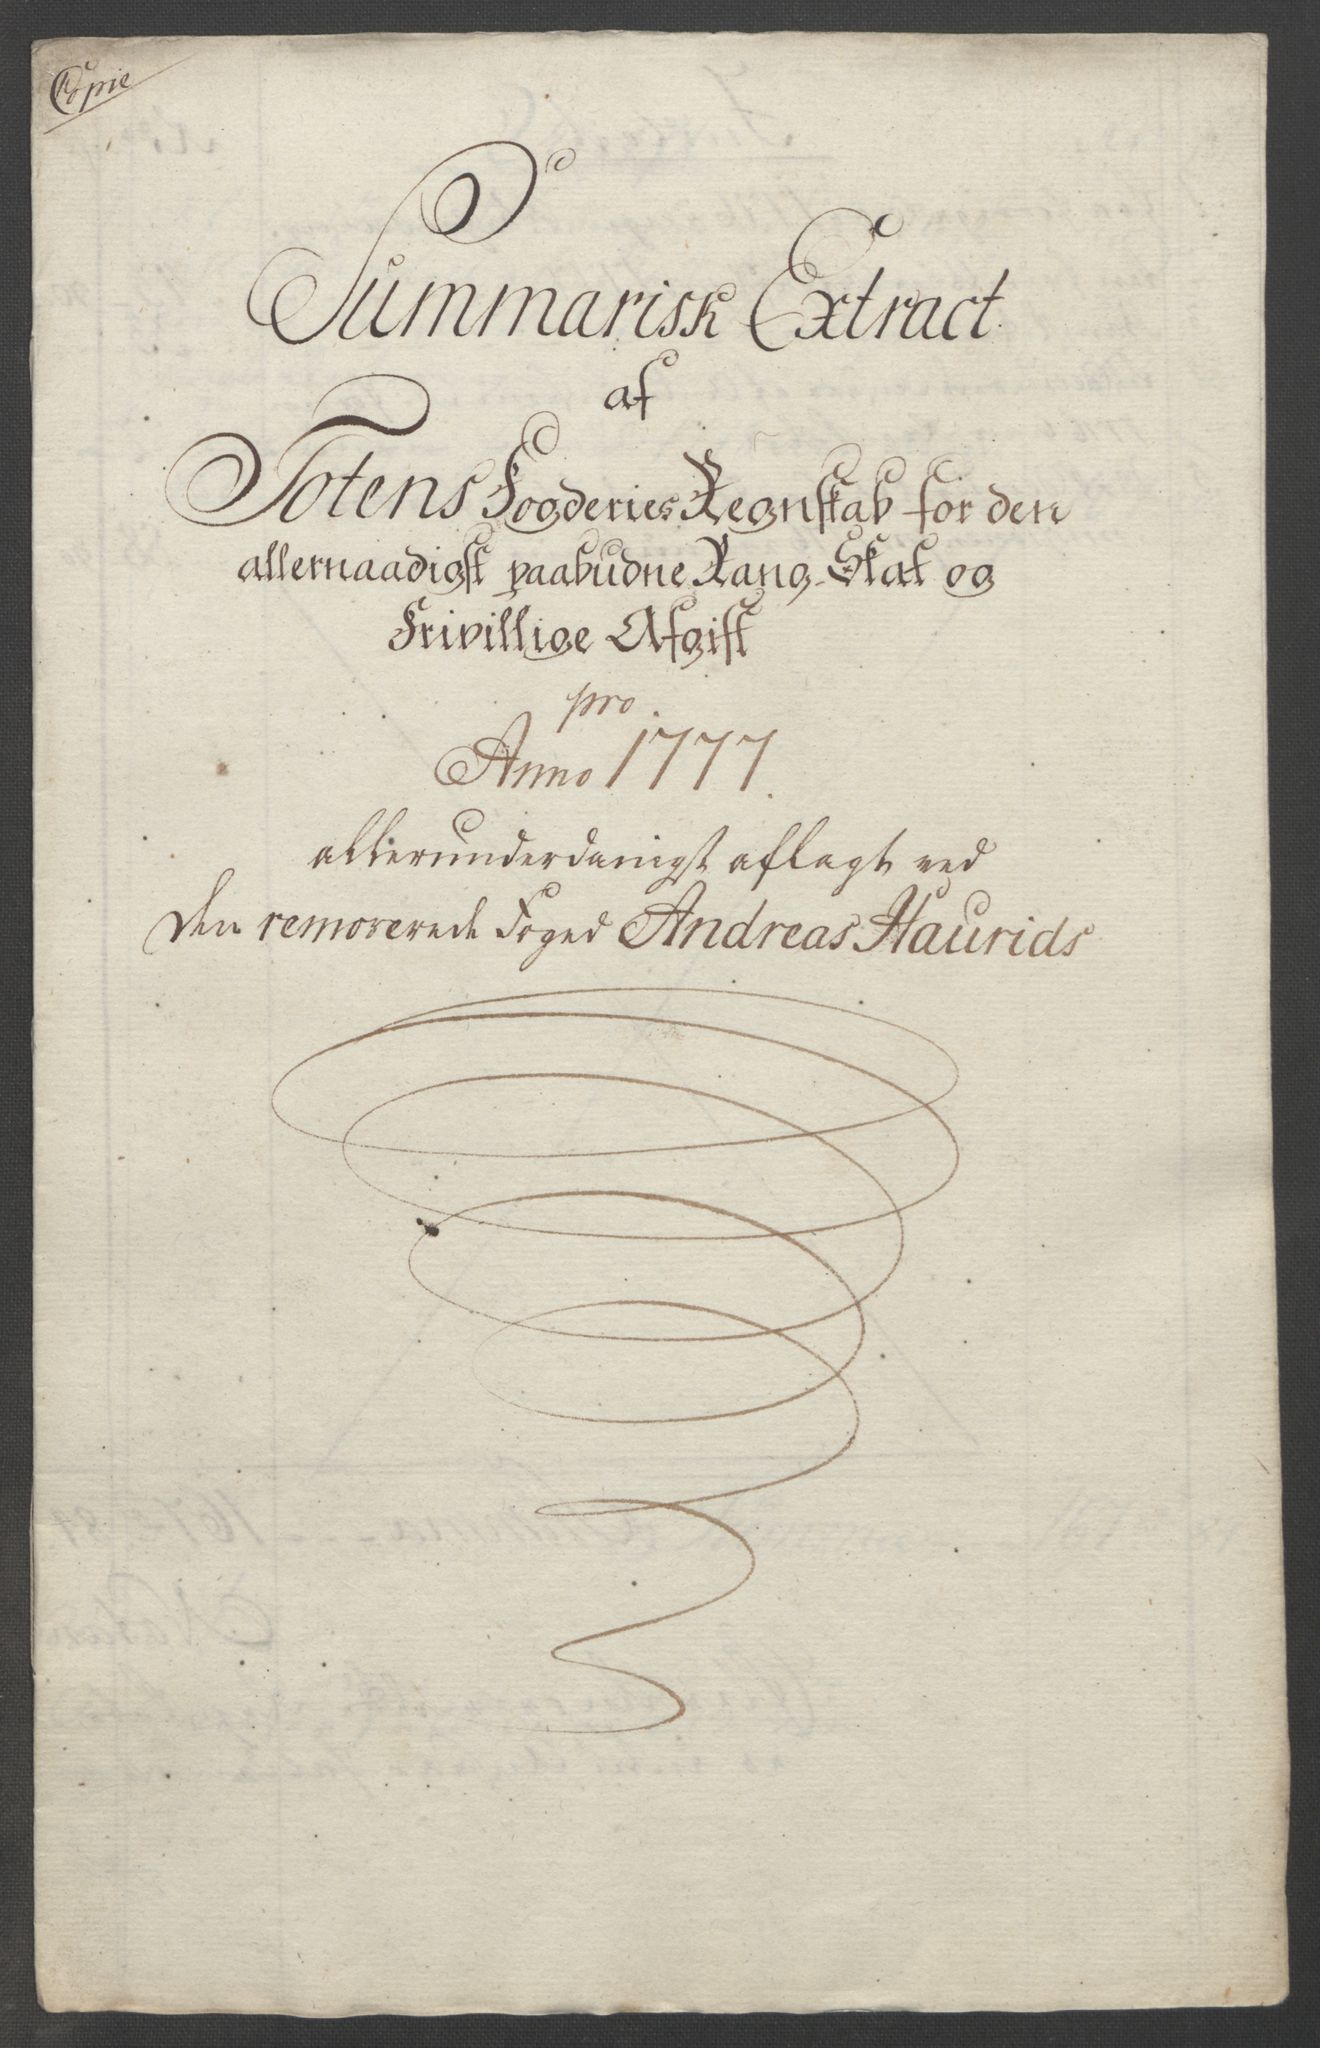 Copie
Summarisk Extract
af
Totens Fogderies Regnskab for den
allernaadigst paabudne Rang-Skat og
Frivillige Afgift
pro
Anno 1777.
allerunderdanigst aflagt ved
den removerede Foged Andreas Haurids